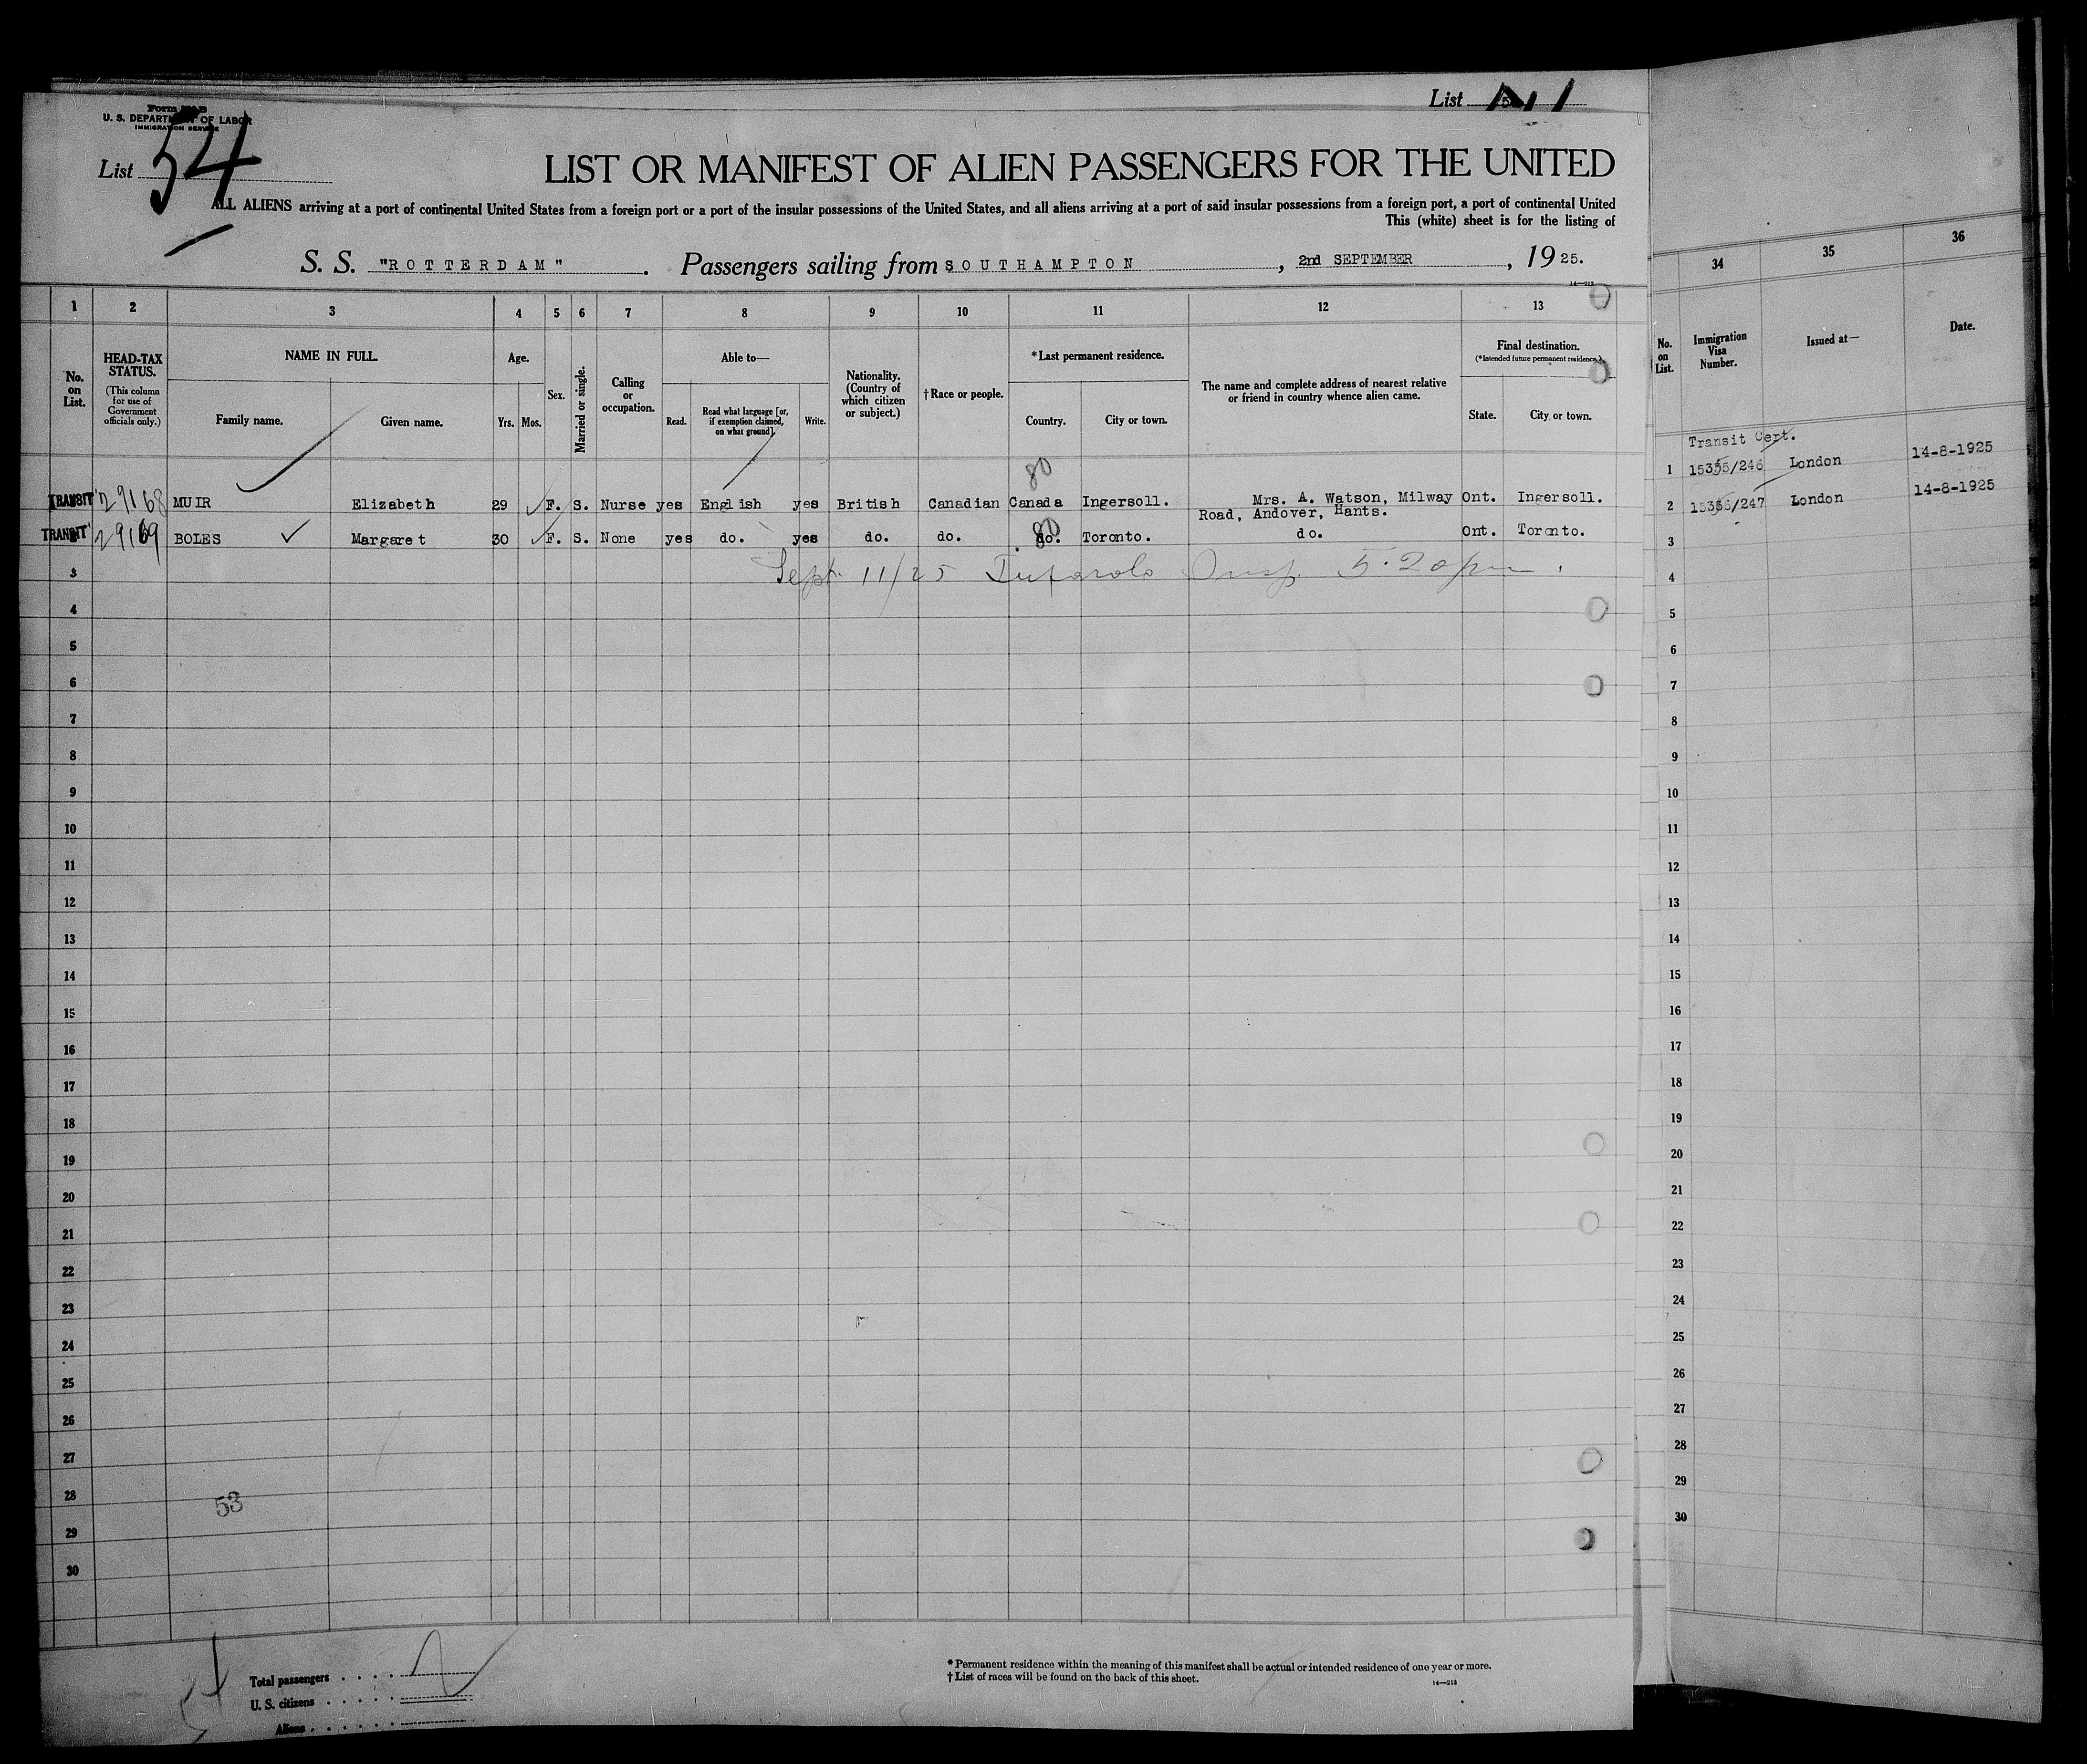 List 1
Form
U. S. DEPARTMENT OF LABOR
IMMIGRATION SERVICE
List 54
LIST OR MANIFEST OF ALIEN PASSENGERS FOR THE UNITED
ALL ALIENS arriving at a port of continental United States from a foreign port or a port of the insular possessions of the United States, and all aliens arriving at a port of said insular possessions from a foreign port, a port of continental United
This (white) sheet is for the listing of
S. S. "ROTTERDAM". Passengers sailing from SOUTHAMPTON, 2nd SEPTEMBER, 1925.
14—213
1 2 3 4 5 6 7 8 9 10 11 12 13
No. on List.
HEAD-TAX STATUS.
(This column for use of Government officials only.)
NAME IN FULL.
Family name. Given name.
Age.
Yrs. Mos.
Sex.
Married or single.
Calling or occupation.
Able to—
Read. Read what language [or, if exemption claimed, on what ground]. Write.
Nationality. (Country of which citizen or subject.)
†Race or people.
*Last permanent residence.
Country. City or town.
The name and complete address of nearest relative or friend in country whence alien came.
Final destination.
(*Intended future permanent residence.)
State. City or town.
80
TRANSIT 29168 MUIR Elizabeth 29 F. S. Nurse yes English yes British Canadian Canada Ingersoll. Mrs. A. Watson, Milway Ont. Ingersoll.
Road, Andover, Hants.
TRANSIT 29169 BOLES Margaret 30 F. S. None yes do. yes do. do. do. 80 Toronto. do. Ont. Toronto.
3 Sept. 11/25 Insp. 5.20 pm.
4
5
6
7
8
9
10
11
12
13
14
15
16
17
18
19
20
21
22
23
24
25
26
27
28 53
29
30
Total passengers
U. S. citizens
Aliens
*Permanent residence within the meaning of this manifest shall be actual or intended residence of one year or more.
†List of races will be found on the back of this sheet.
14—213
34 35 36
No. on List.
Immigration Visa Number.
Issued at—
Date.
Transit Cert.
1 15355/246 London 14-8-1925
2 15356/247 London 14-8-1925
3
4
5
6
7
8
9
10
11
12
13
14
15
16
17
18
19
20
21
22
23
24
25
26
27
28
29
30